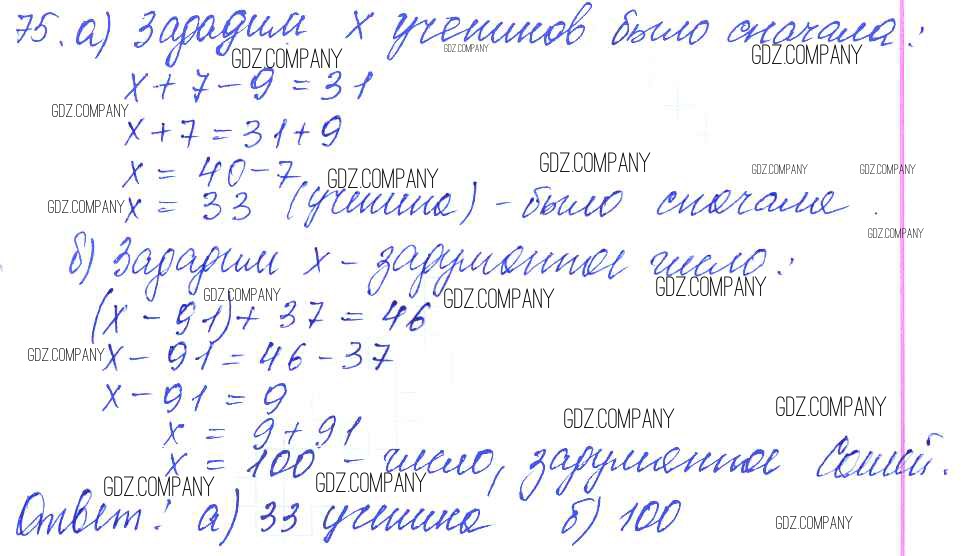 75. а) Зададим х учеников было сначала:
GDZ.COMPANY GDZ.COMPANY GDZ.COMPANY
х + 7 - 9 = 31
GDZ.COMPANY
х + 7 = 31 + 9
х = 40 - 7
GDZ.COMPANY GDZ.COMPANY GDZ.COMPANY GDZ.COMPANY
GDZ.COMPANY
х = 33 (ученика) - было сначала.
GDZ.COMPANY
б) Зададим х - задуманное число:
GDZ.COMPANY GDZ.COMPANY GDZ.COMPANY
(х - 91) + 37 = 46
GDZ.COMPANY
х - 91 = 46 - 37
х - 91 = 9
GDZ.COMPANY GDZ.COMPANY
х = 9 + 91
х = 100 - число, задуманное Сашей.
GDZ.COMPANY GDZ.COMPANY
Ответ: а) 33 ученика б) 100
GDZ.COMPANY